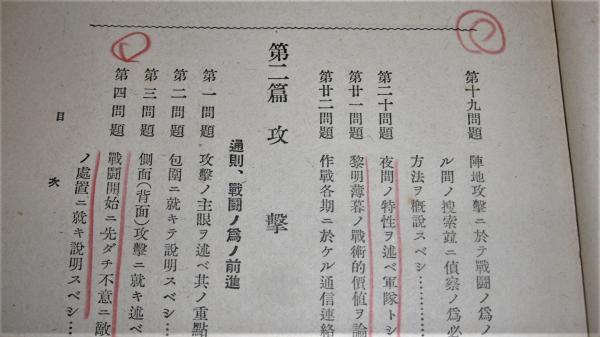 第十九問題　陣地攻擊ニ於テ戰鬪ノ爲ノ
ル間ノ搜索竝ニ偵察ノ爲必
方法ヲ槪說スベシ…………
第二十問題　夜間ノ特性ヲ述ベ軍隊トシ
第廿一問題　黎明薄暮ノ戰術的價値ヲ論
第廿二問題　作戰各期ニ於ケル通信連絡
第二篇　攻擊
通則、戰鬪ノ爲ノ前進
第一問題　攻擊ノ主眼ヲ述ベ其ノ重點
第二問題　包圍ニ就キテ說明スベシ…
第三問題　側面(背面)攻擊ニ就キ述ベ
第四問題　戰鬪開始ニ先ダチ不意ニ敵
ノ處置ニ就キ說明スベシ…
目次